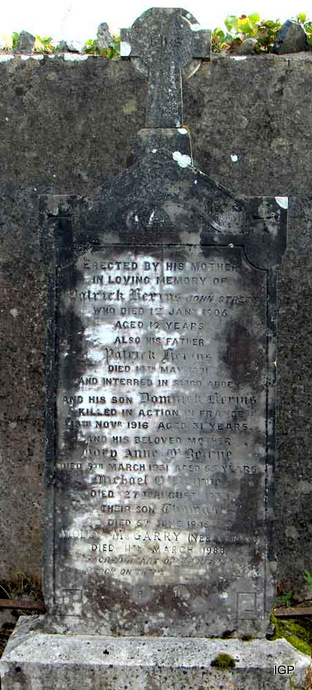 IHS
ERECTED BY HIS MOTHER
IN LOVING MEMORY OF
Patrick Kerins JOHN STREET
WHO DIED 1ST JANY 1906
AGED 12 YEARS
ALSO HIS FATHER
Patrick Kerins
DIED MAY
AND INTERRED IN SLIGO ABBEY
AND HIS SON Dominick Kerins
KILLED IN ACTION IN FRANCE
NOVR 1916 AGED 31 YEARS
AND HIS BELOVED MOTHER
Mary Anne O'Beirne
DIED MARCH 1931 AGED 65 YEARS
Michael
DIED 27TH AUGUST
THEIR SON
DIED JUNE
McGARRY (NEE KERINS)
DIED 11TH MARCH 1983
SACRED HEART OF
MERCY ON
IGP